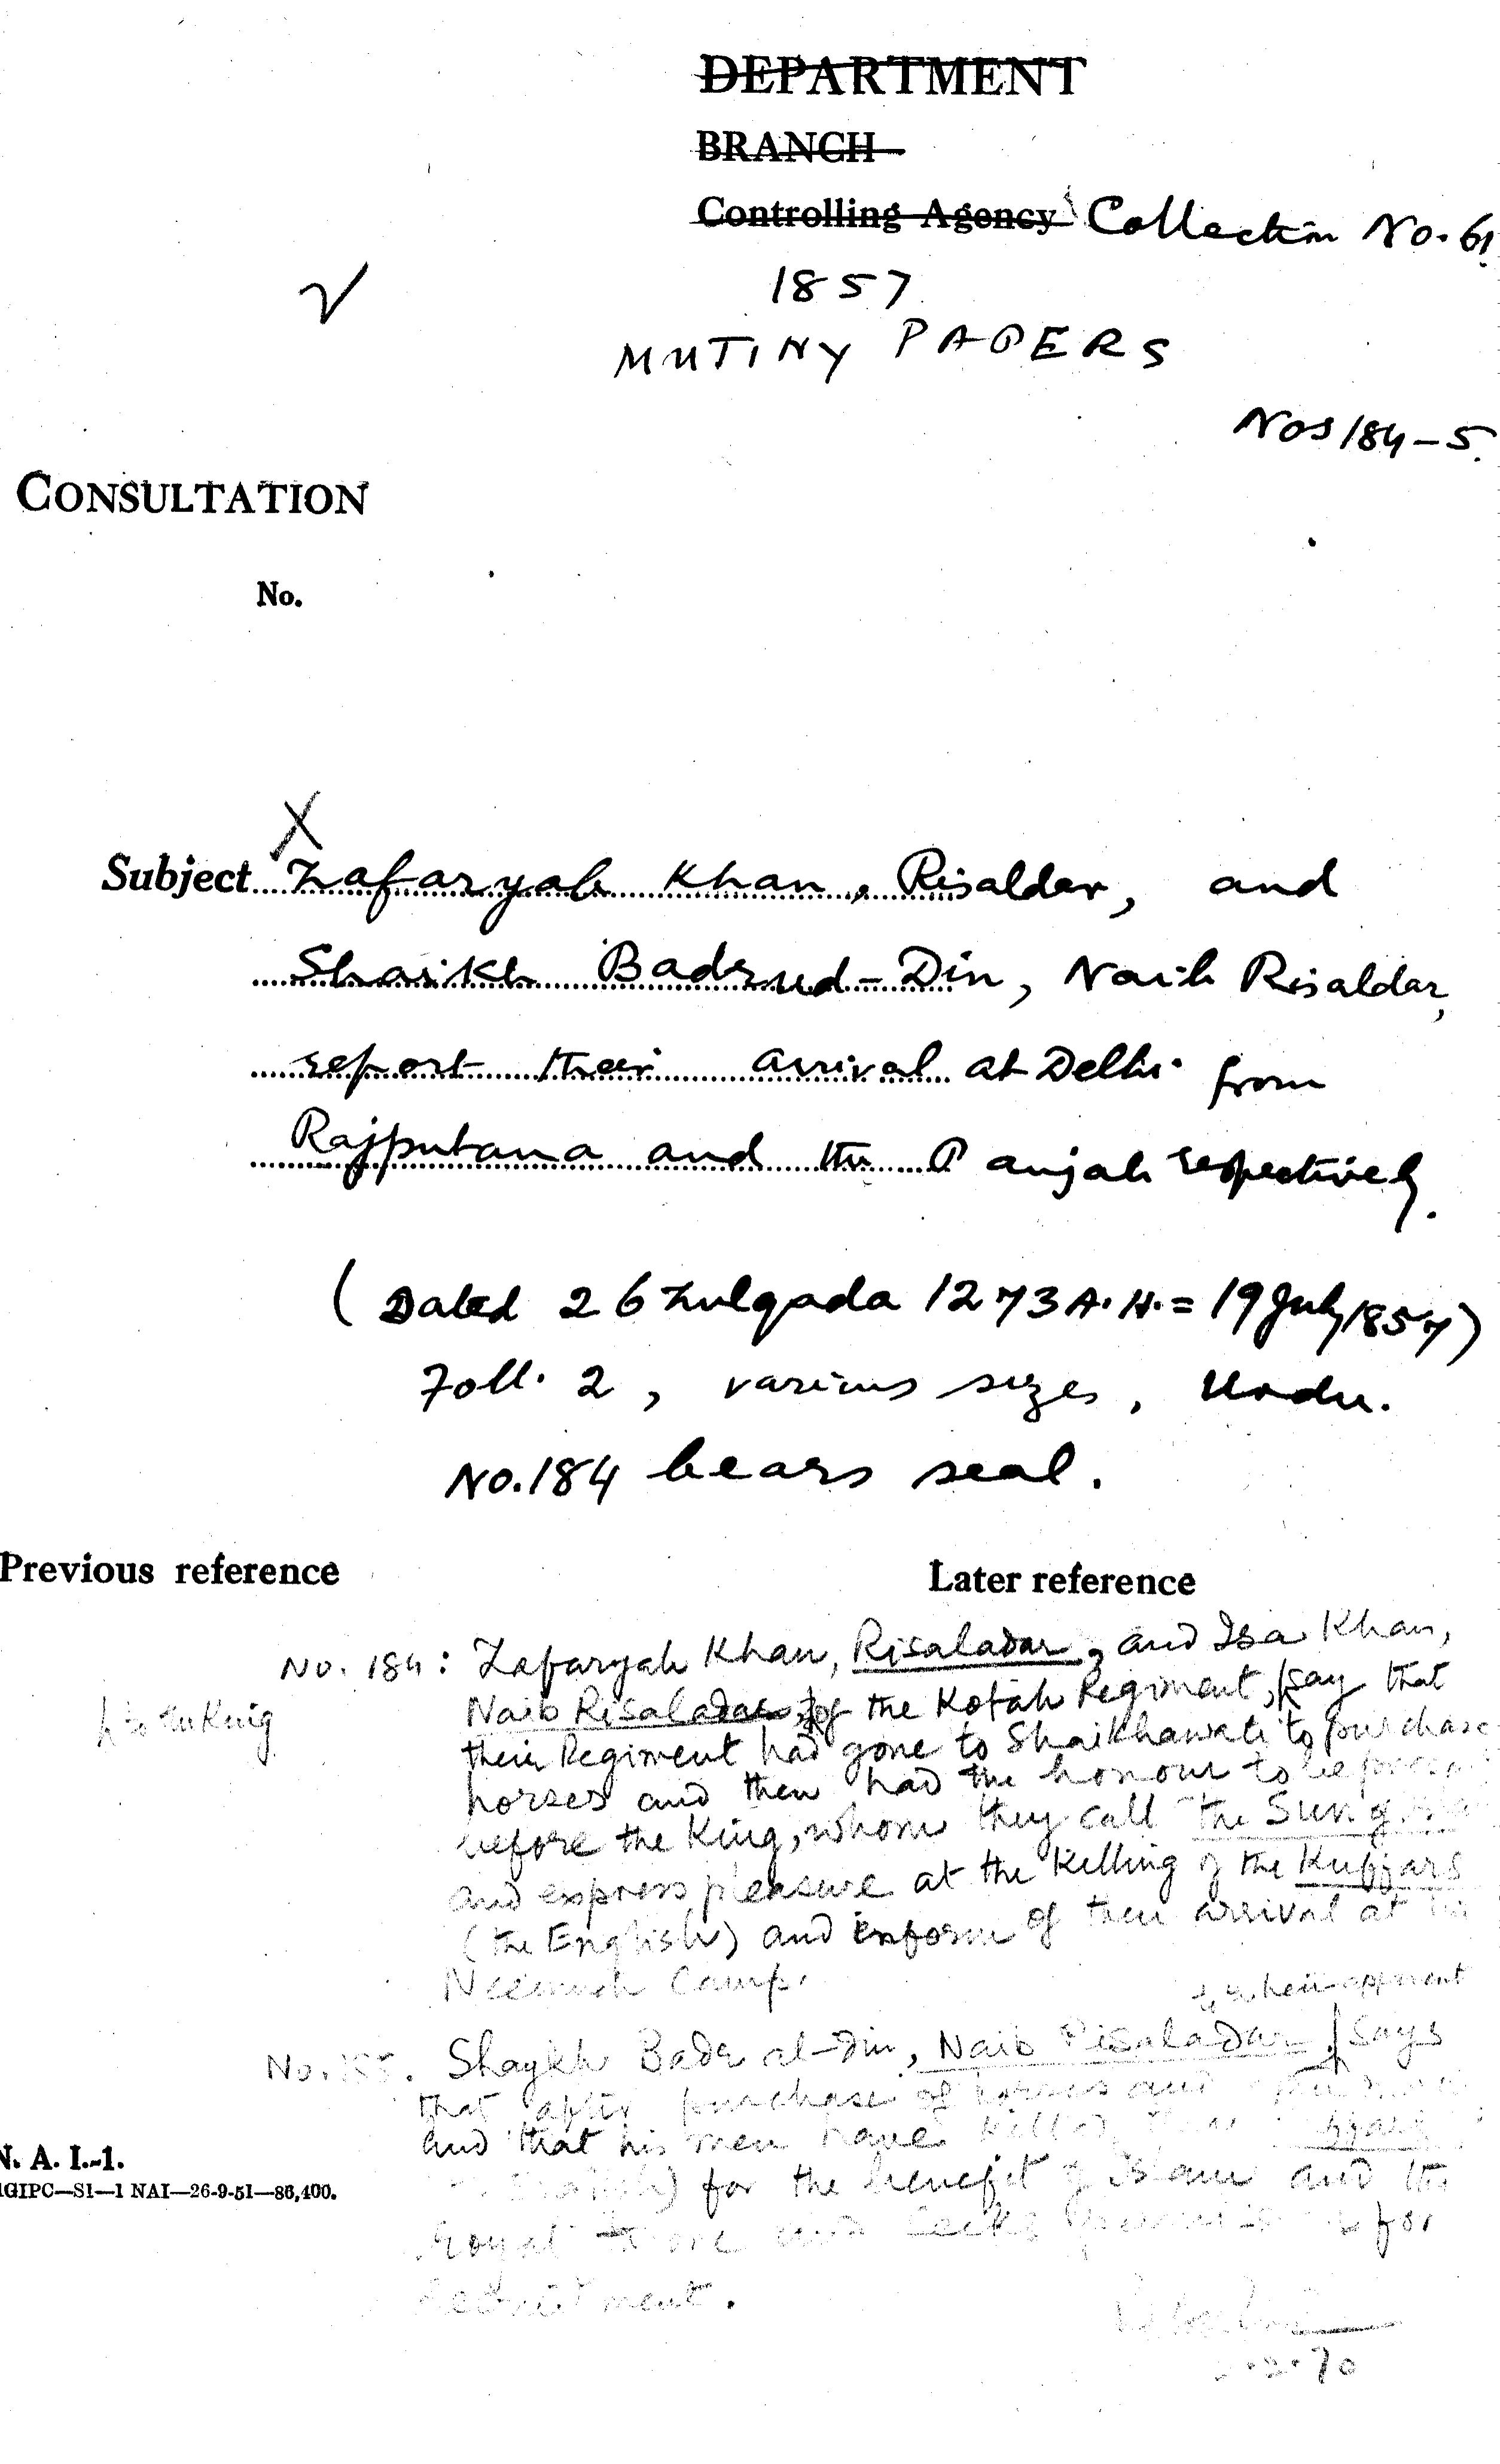 DEPARTMENT
BRANCH
Controlling Agency Collection No. 61
1857
MUTINY PAPERS
Nos 184-5.
CONSULTATION
No.
X
Subject Zafaryab Khan, Risaldar, and
Shaikh Badr ud-Din, Naib Risaldar,
report their arrival at Delhi from
Rajputana and the Panjab respectively.
(Dated 26 Zulqada 1273 A.H. = 19 July 1857)
Foll. 2, various sizes, Urdu.
No. 184 bears seal.
Previous reference
Later reference
No. 184: Zafaryab Khan, Risaladar, and Isa Khan,
Naib Risaladar, of the Kotah Regiment, say that
to the King
their Regiment had gone to Shaikhawati to purchase
horses and then had the honour to be
before the King, whom they call the Sun of
and express pleasure at the killing of the Kuffars
(the English) and inform of their arrival at the
Neemuch Camp.
apparent
No. 185. Shaykh Badr al-Din, Naib Risaladar says
that after purchase of horses and
and that his men have killed
for the benefit of Islam and the
Royal and seeks for
recruitment.
70
N. A. I.-1.
GIPC—S1—1 NAI—26-9-51—86,400.